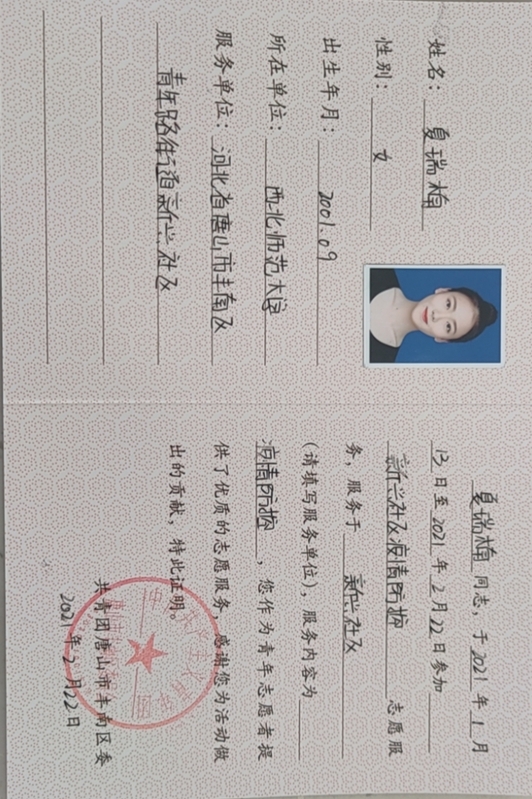 姓名：夏瑞楠
性别：女
出生年月：2001.09
所在单位：西北师范大学
服务单位：河北省唐山市丰南区
青年路街道新兴社区
夏瑞楠同志，于2021年1月
13日至2021年2月22日参加
新兴社区疫情防控 志愿服
务，服务于 新兴社区
（请填写服务单位），服务内容为
疫情防控，您作为青年志愿者提
供了优质的志愿服务，感谢您为活动做
出的贡献，特此证明。
共青团唐山市丰南区委
2021年2月22日